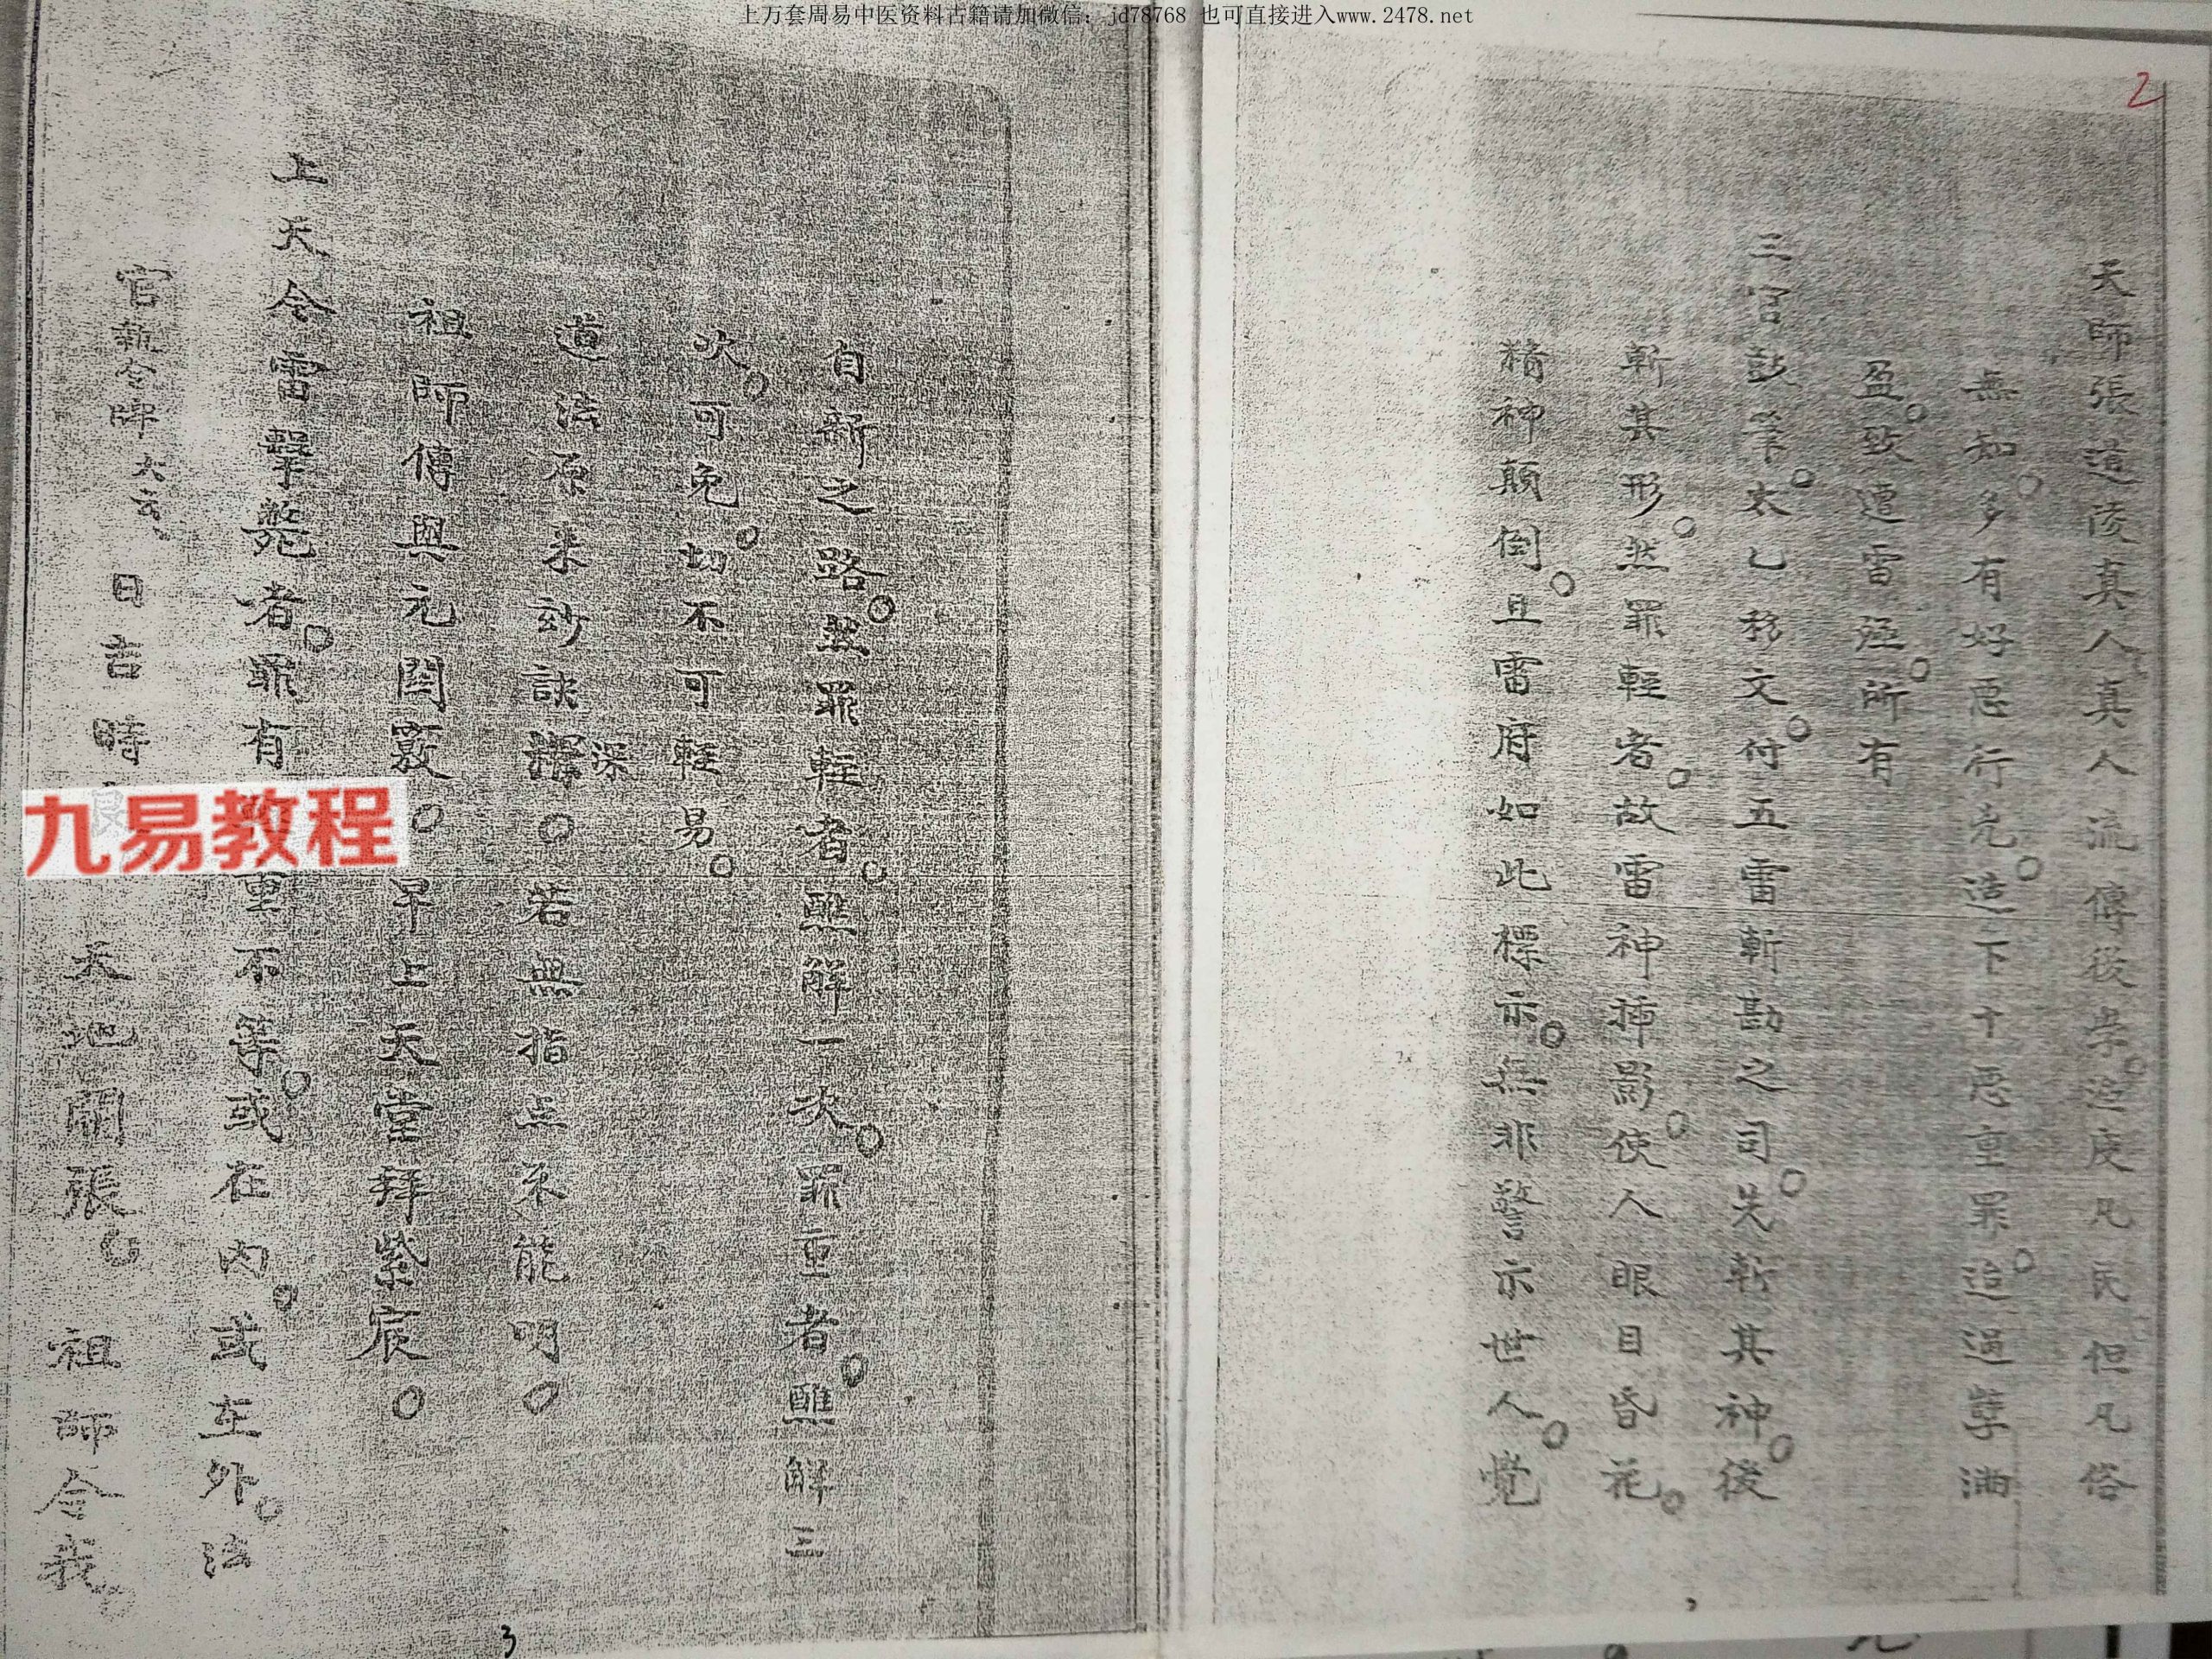 上万套周易中医资料古籍请加微信：jd78768 也可直接进入www.2478.net
2
天師張道陵真人真人流傳後
無知。多有好惡行兇。造下十惡重罪。迨過孽滿
盈。致遭雷 所有
三官 筆。太乙移文。付五雷斬勘之司。先斬其神。後
斬其形。然罪輕者。故雷神 影。使人眼目昏花。
精神顛倒。且雷府如此標示。無非警示世人。覺
自新之路。然罪輕者。醮解一次。罪重者。醮解三
次。可免。切不可輕易。
道法原來妙訣深。若無指点不能明。
祖師傳與元関竅。早上天堂拜紫宸。
上天令雷擊斃者。罪有 重不等。或在内。或在外。法
官 令牌 日吉時 天地開張。祖師令我。
九易教程
3